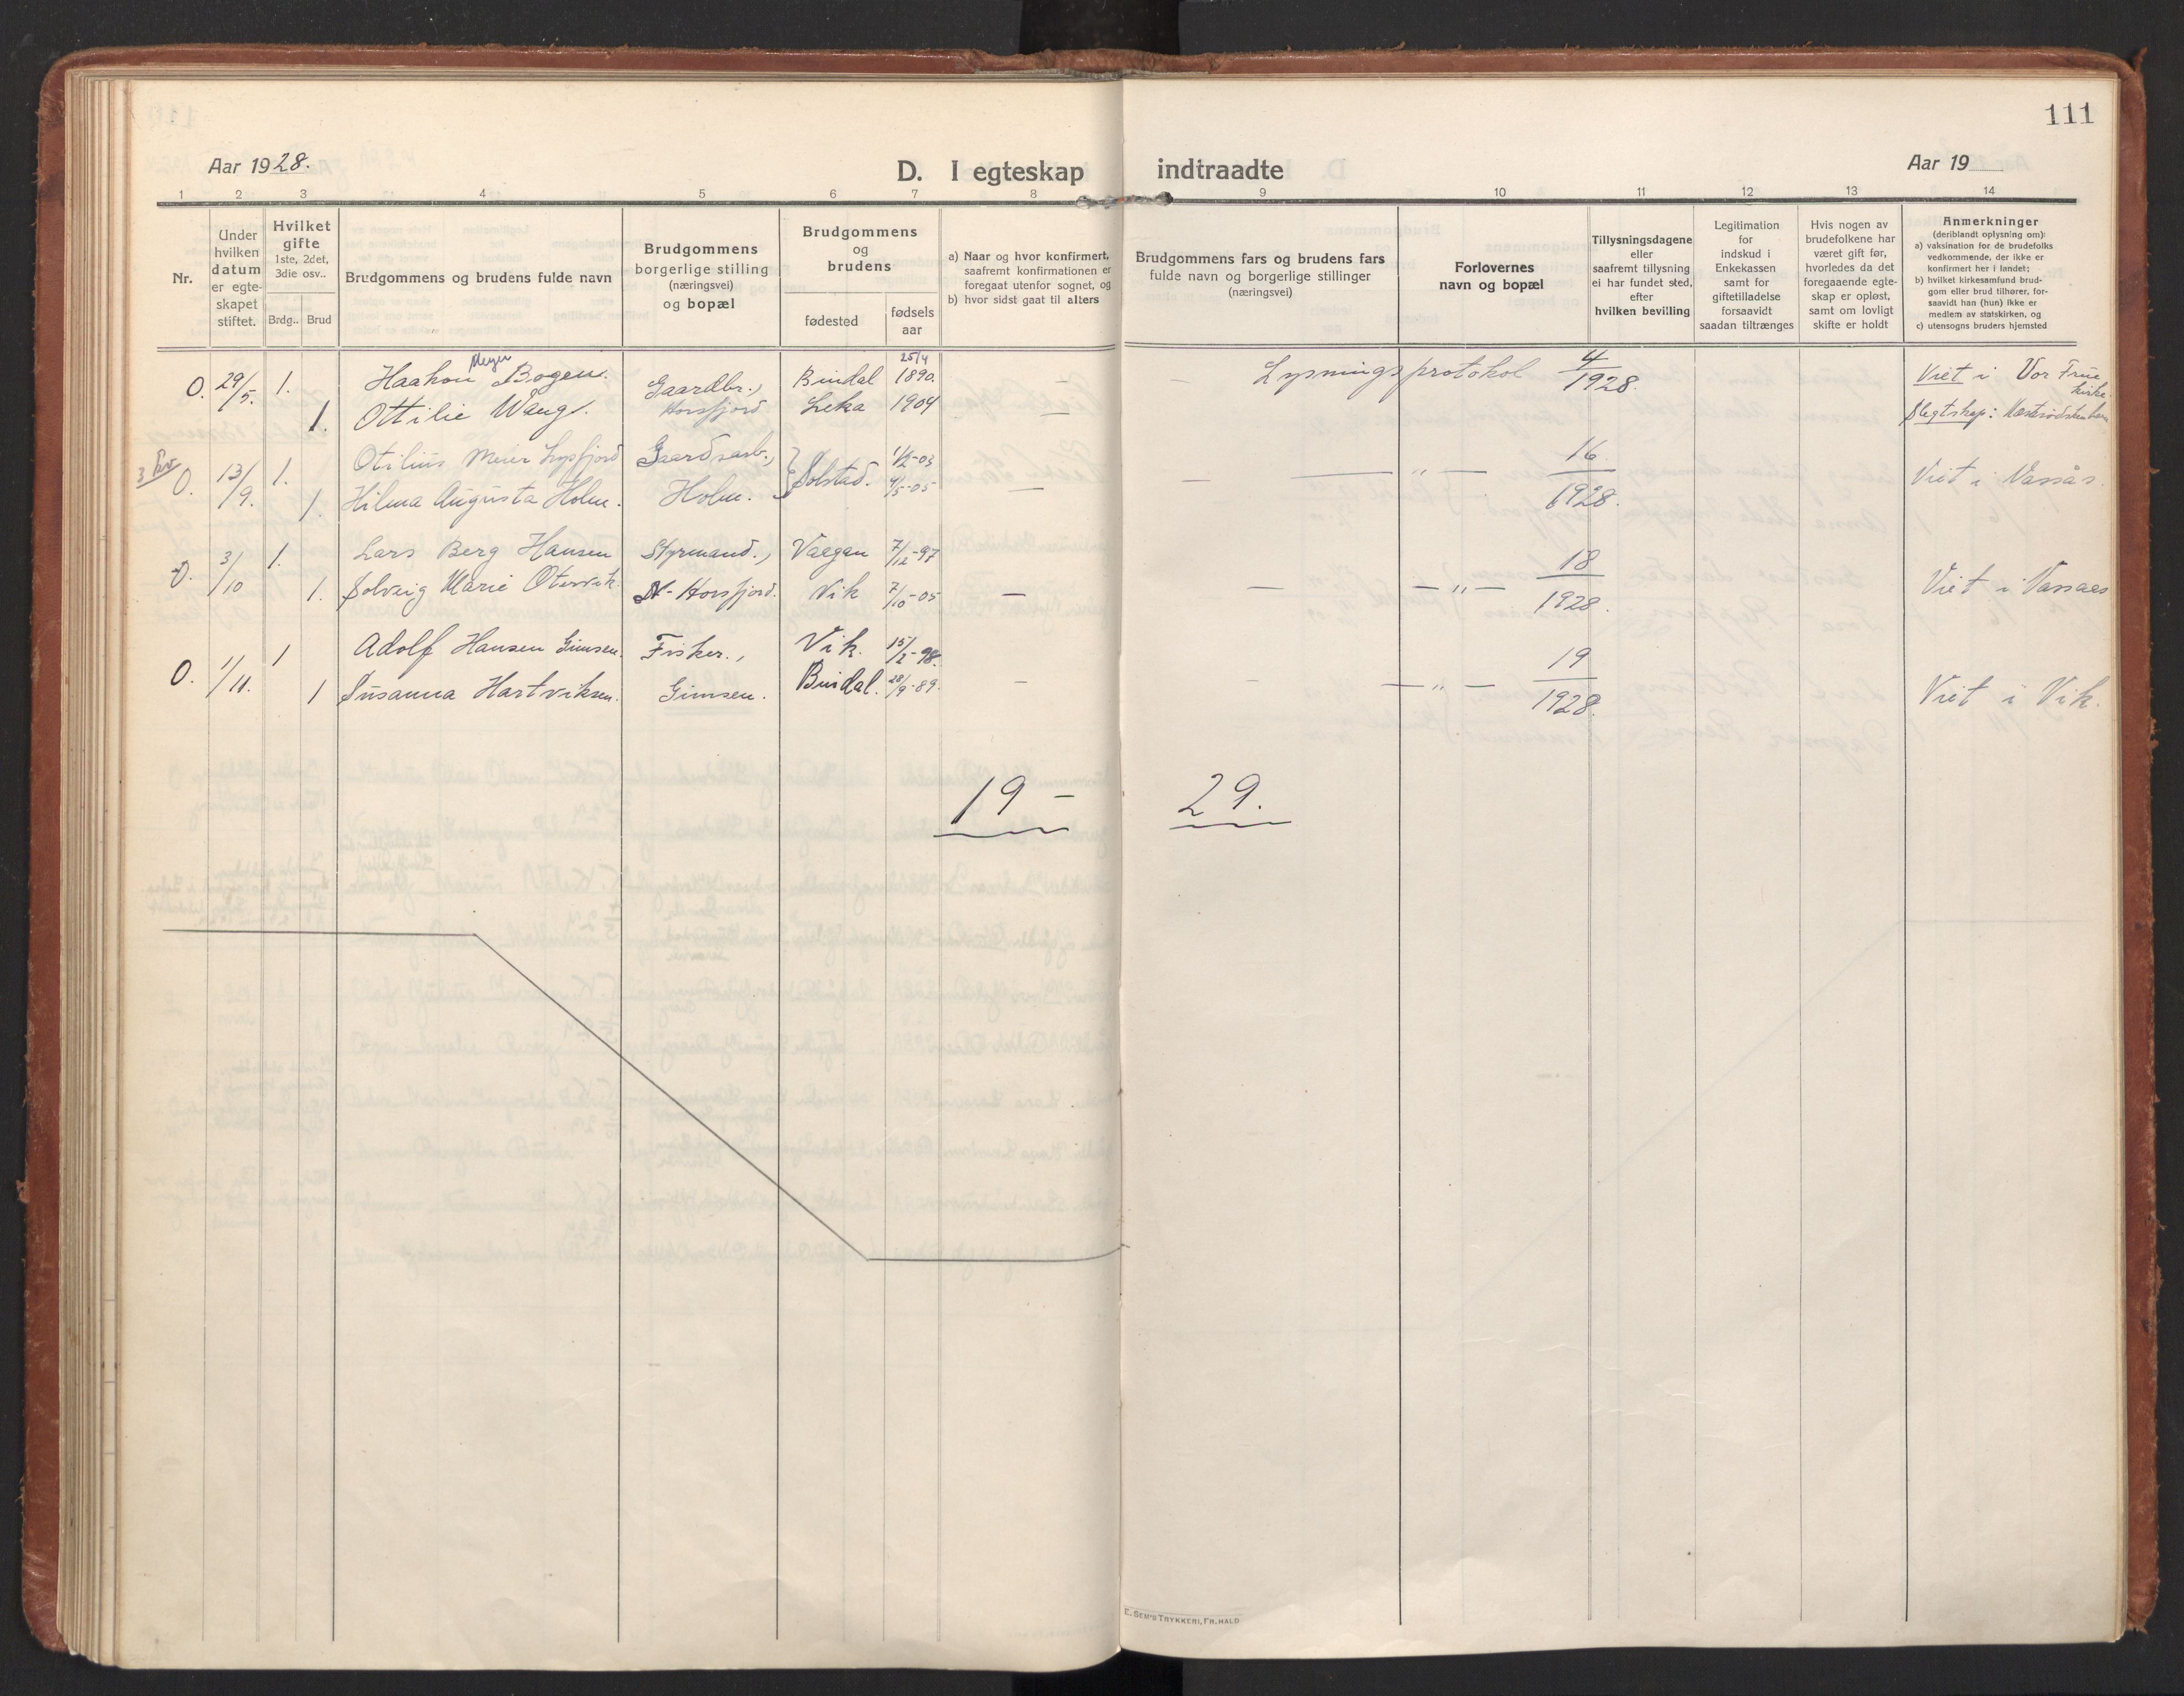 111
Aar 1928.
D. I egteskap indtraadte
Aar 19
1 2 3 4 5 6 7 8 9 10 11 12 13 14
Nr.
Under
hvilken
datum
er egte-
skapet
stiftet.
Hvilket
gifte
1ste, 2det,
3die osv..
Brdg.. Brud
Brudgommens og brudens fulde navn
Brudgommens
borgerlige stilling
(næringsvei)
og bopæl
Brudgommens
og
brudens
fødested
fødsels
aar
a) Naar og hvor konfirmert,
saafremt konfirmationen er
foregaat utenfor sognet, og
b) hvor sidst gaat til alters
Brudgommens fars og brudens fars
fulde navn og borgerlige stillinger
(næringsvei)
Forlovernes
navn og bopæl
Tillysningsdagene
eller
saafremt tillysning
ei har fundet sted,
efter
hvilken bevilling
Legitimation
for
indskud i
Enkekassen
samt for
giftetilladelse
forsaavidt
saadan tiltrænges
Hvis nogen av
brudefolkene har
været gift før,
hvorledes da det
foregaaende egte-
skap er opløst,
samt om lovligt
skifte er holdt
Anmerkninger
(deriblandt oplysning om):
a) vaksination for de brudefolks
vedkommende, der ikke er
konfirmert her i landet;
b) hvilket kirkesamfund brud-
gom eller brud tilhører, for-
saavidt han (hun) ikke er
medlem av statskirken, og
c) utensogns bruders hjemsted
0. 29/5. 1. Haakon Meyer Bogen. Gaardbr., Bindal 25/4 1890. — — Lysningsprotokol 4/1928. Viet i Vor Frue Kirke.
1. Ottilie Wang. Horsfjord Leka 1904 — Slegtskap:
0. 13/9. 1. Otilius Meier Lysfjord Gaardsarb., Solstad. 1/2-03 — — „ — 16/1928. Viet i Vassås.
1. Hilma Augusta Holm. Holm. 4/5-05 —
0. 3/10 1. Lars Berg Hansen Styrmand., Vaagan 7/12-97 — — „ — 18/1928. Viet i Vassaas
1. Solveig Marie Otervik. N-Horsfjord. Vik 7/10-05 —
0. 1/11. 1 Adolf Hansen Gimsen. Fisker., Vik. 15/2-98. — — „ — 19/1928. Viet i Vik.
1 Susanna Hartviksen. Gimsen. Bindal. 28/9-89.
19 — 29.
E. SEM'S TRYKKERI, FR.HALD